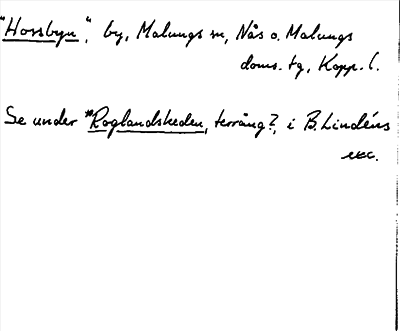 "Hossbyn", by, Malungs sn, Nås o. Malungs
doms. tg, Kopp. l.
Se under *Roglandsheden, terräng?, i B. Lindéns
exc.